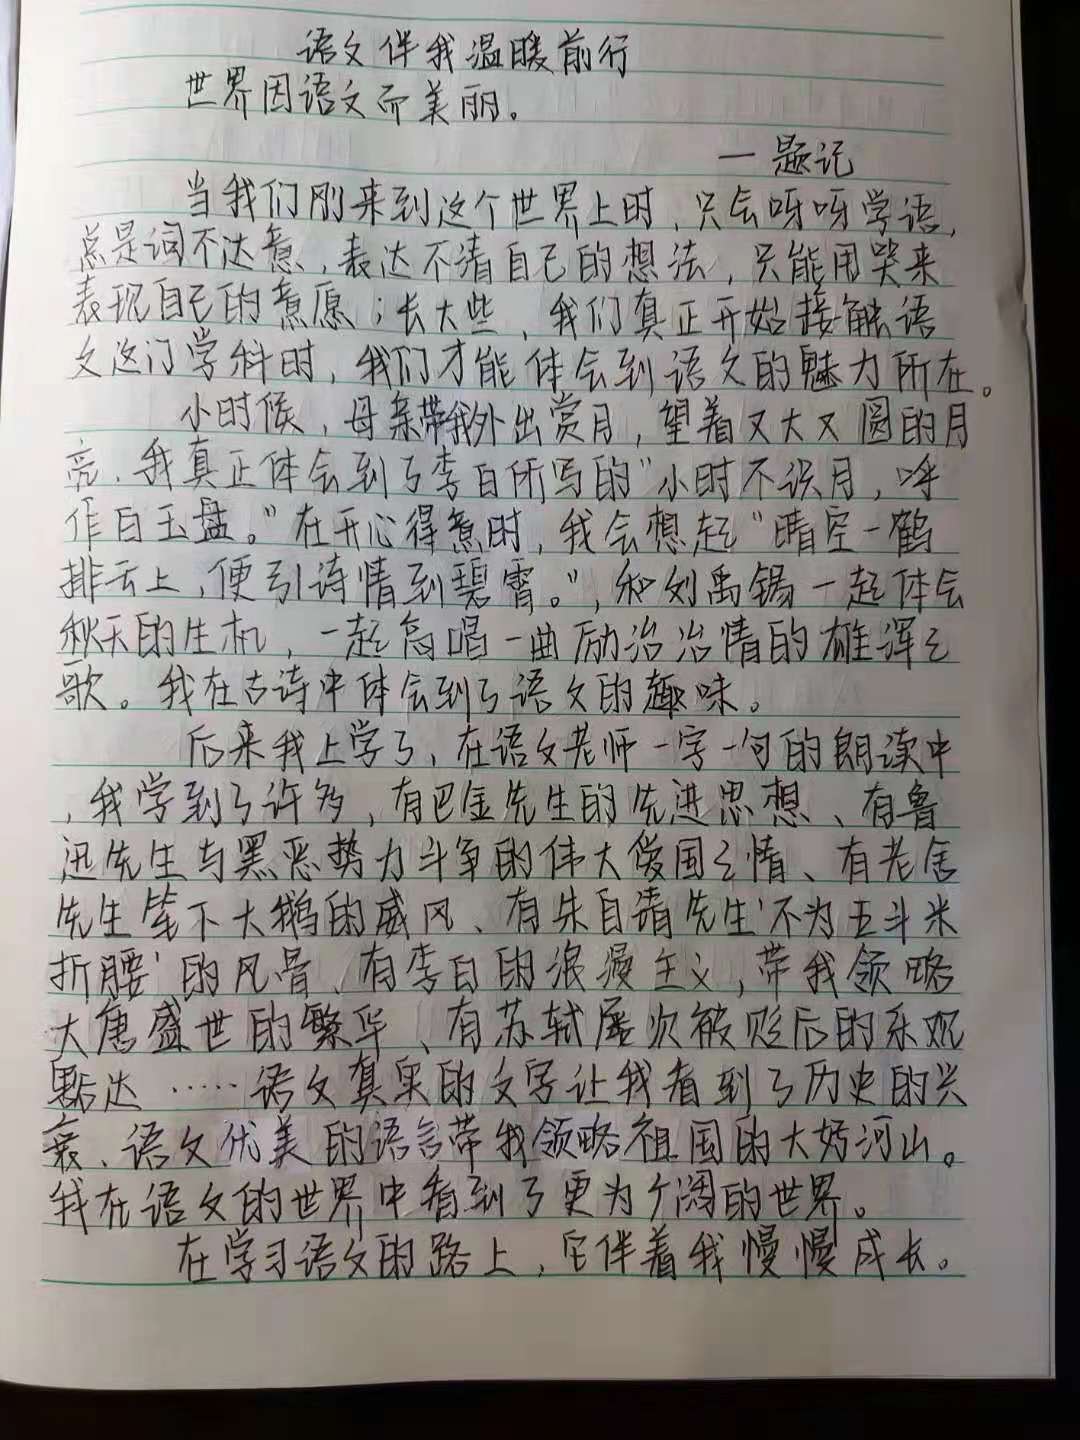 语文伴我温暖前行
世界因语文而美丽。
一题记
当我们刚来到这个世界上时,只会呀呀学语,
总是词不达意,表达不清自己的想法,只能用哭来
表现自己的意愿;长大些,我们真正开始接触语
文这门学科时,我们才能体会到语文的魅力所在。
小时候,母亲带我外出赏月,望着又大又圆的月
亮,我真正体会到了李白所写的"小时不识月,呼
作白玉盘。"在开心得意时,我会想起"晴空一鹤
排云上,便引诗情到碧霄。",和刘禹锡一起体会
秋天的生机,一起高唱一曲励治冶情的雄浑之
歌。我在古诗中体会到了语文的趣味。
后来我上学了,在语文老师一字一句的朗读中
,我学到了许多,有巴金先生的先进思想、有鲁
迅先生与黑恶势力斗争的伟大爱国之情、有老舍
先生笔下大鹅的威风、有朱自清先生'不为五斗米
折腰'的风骨、有李白的浪漫主义,带我领略
大唐盛世的繁华、有苏轼屡次被贬后的乐观
豁达……语文真实的文字让我看到了历史的兴
衰、语文优美的语言带我领略祖国的大好河山。
我在语文的世界中看到了更为广阔的世界。
在学习语文的路上,它伴着我慢慢成长。